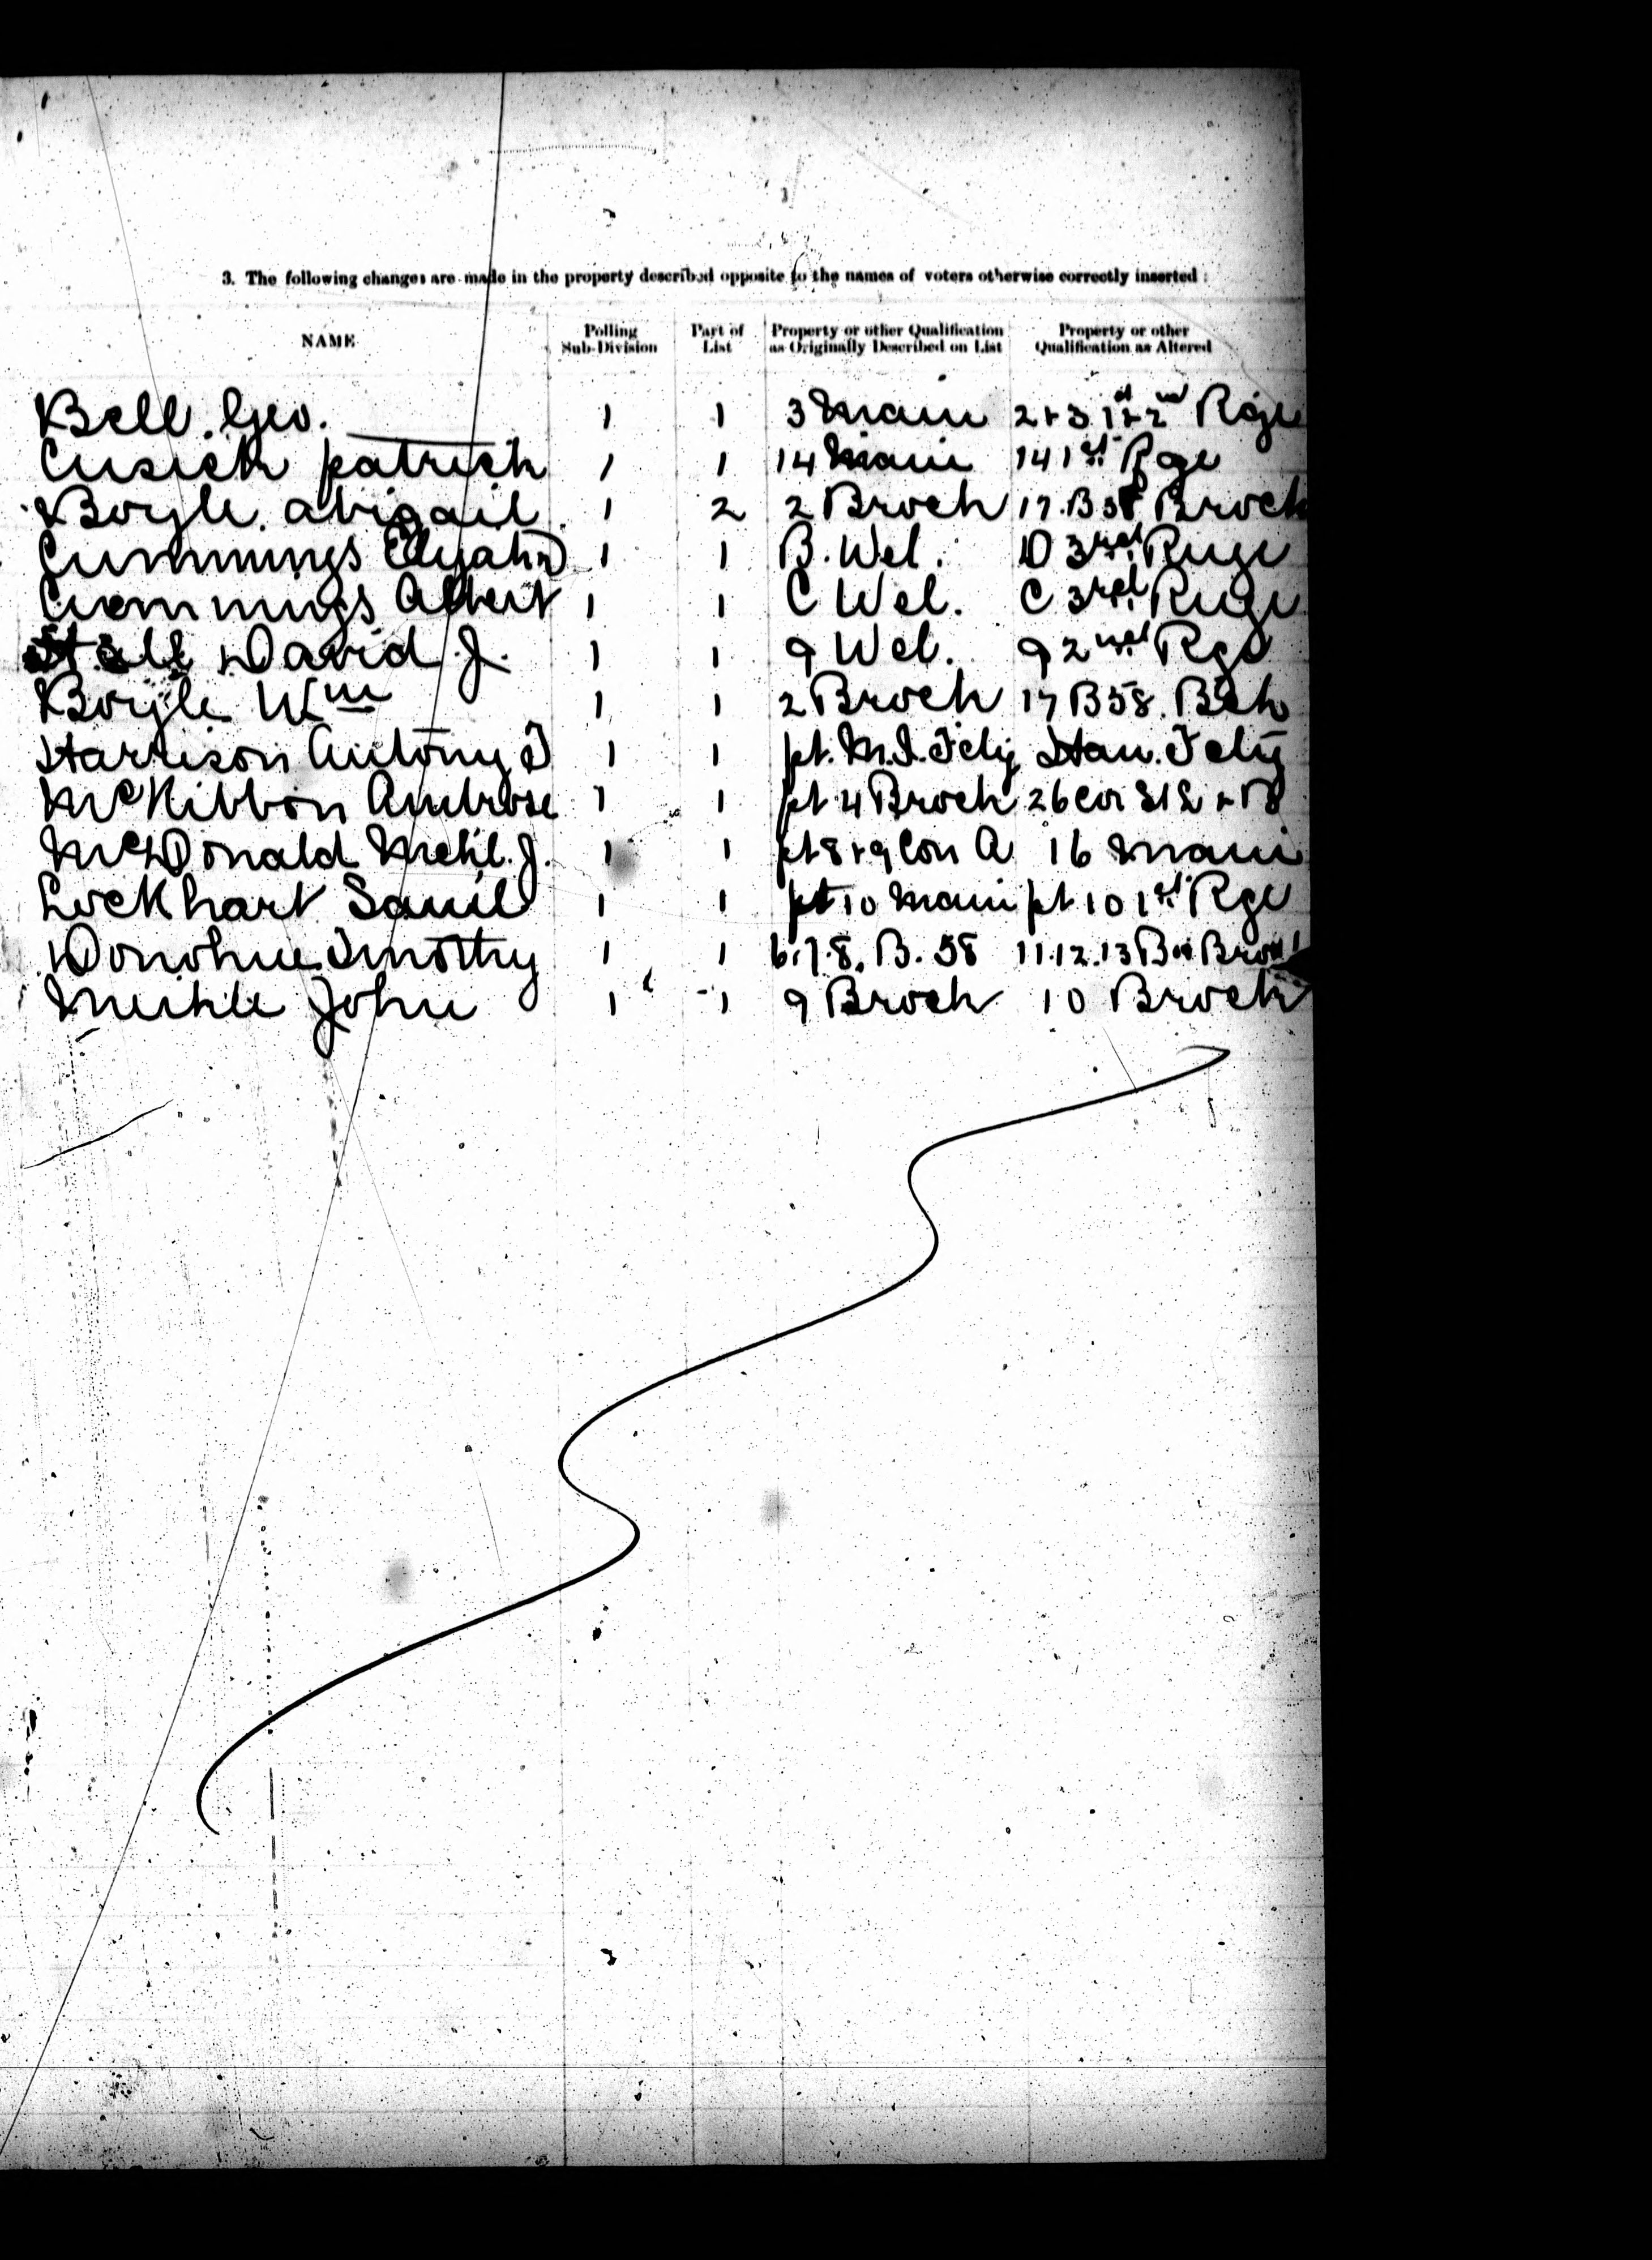 3. The following changes are made in the property described opposite to the names of voters otherwise correctly inserted :
NAME Polling Sub-Division Part of List Property or other Qualification as Originally Described on List Property or other Qualification as Altered
Bell. Geo. 1 1 3 Main 2+3 1st+2nd Rge
Cusick patrick 1 1 14 Main 14 1st Rge
Boyle. abigail 1 2 2 Brock 17. B 58 Brock
Cummings Elijah 1 1 B. Wel. D 3rd Ruge
Cummings Albert 1 1 C Wel. C 3rd Ruge
David J. 1 1 9 Wel. 9 2nd Rge
Boyle Wm 1 1 2 Brock 17 B 58. Bck
Harrison Antony 1 1 pt. M.I. Tely Stan. Tely
McKibbon Ambrose 1 1 pt 4 Brock 26 Con
McDonald Mchl. J. 1 1 pt 8+9 Con A 16 Main
Lockhart Saml 1 1 pt 10 Main pt 10 1st Rge
Donohue Timothy 1 1 6.7.8. B. 58 11.12.13
Meihle John 1 1 9 Brock 10 Brock